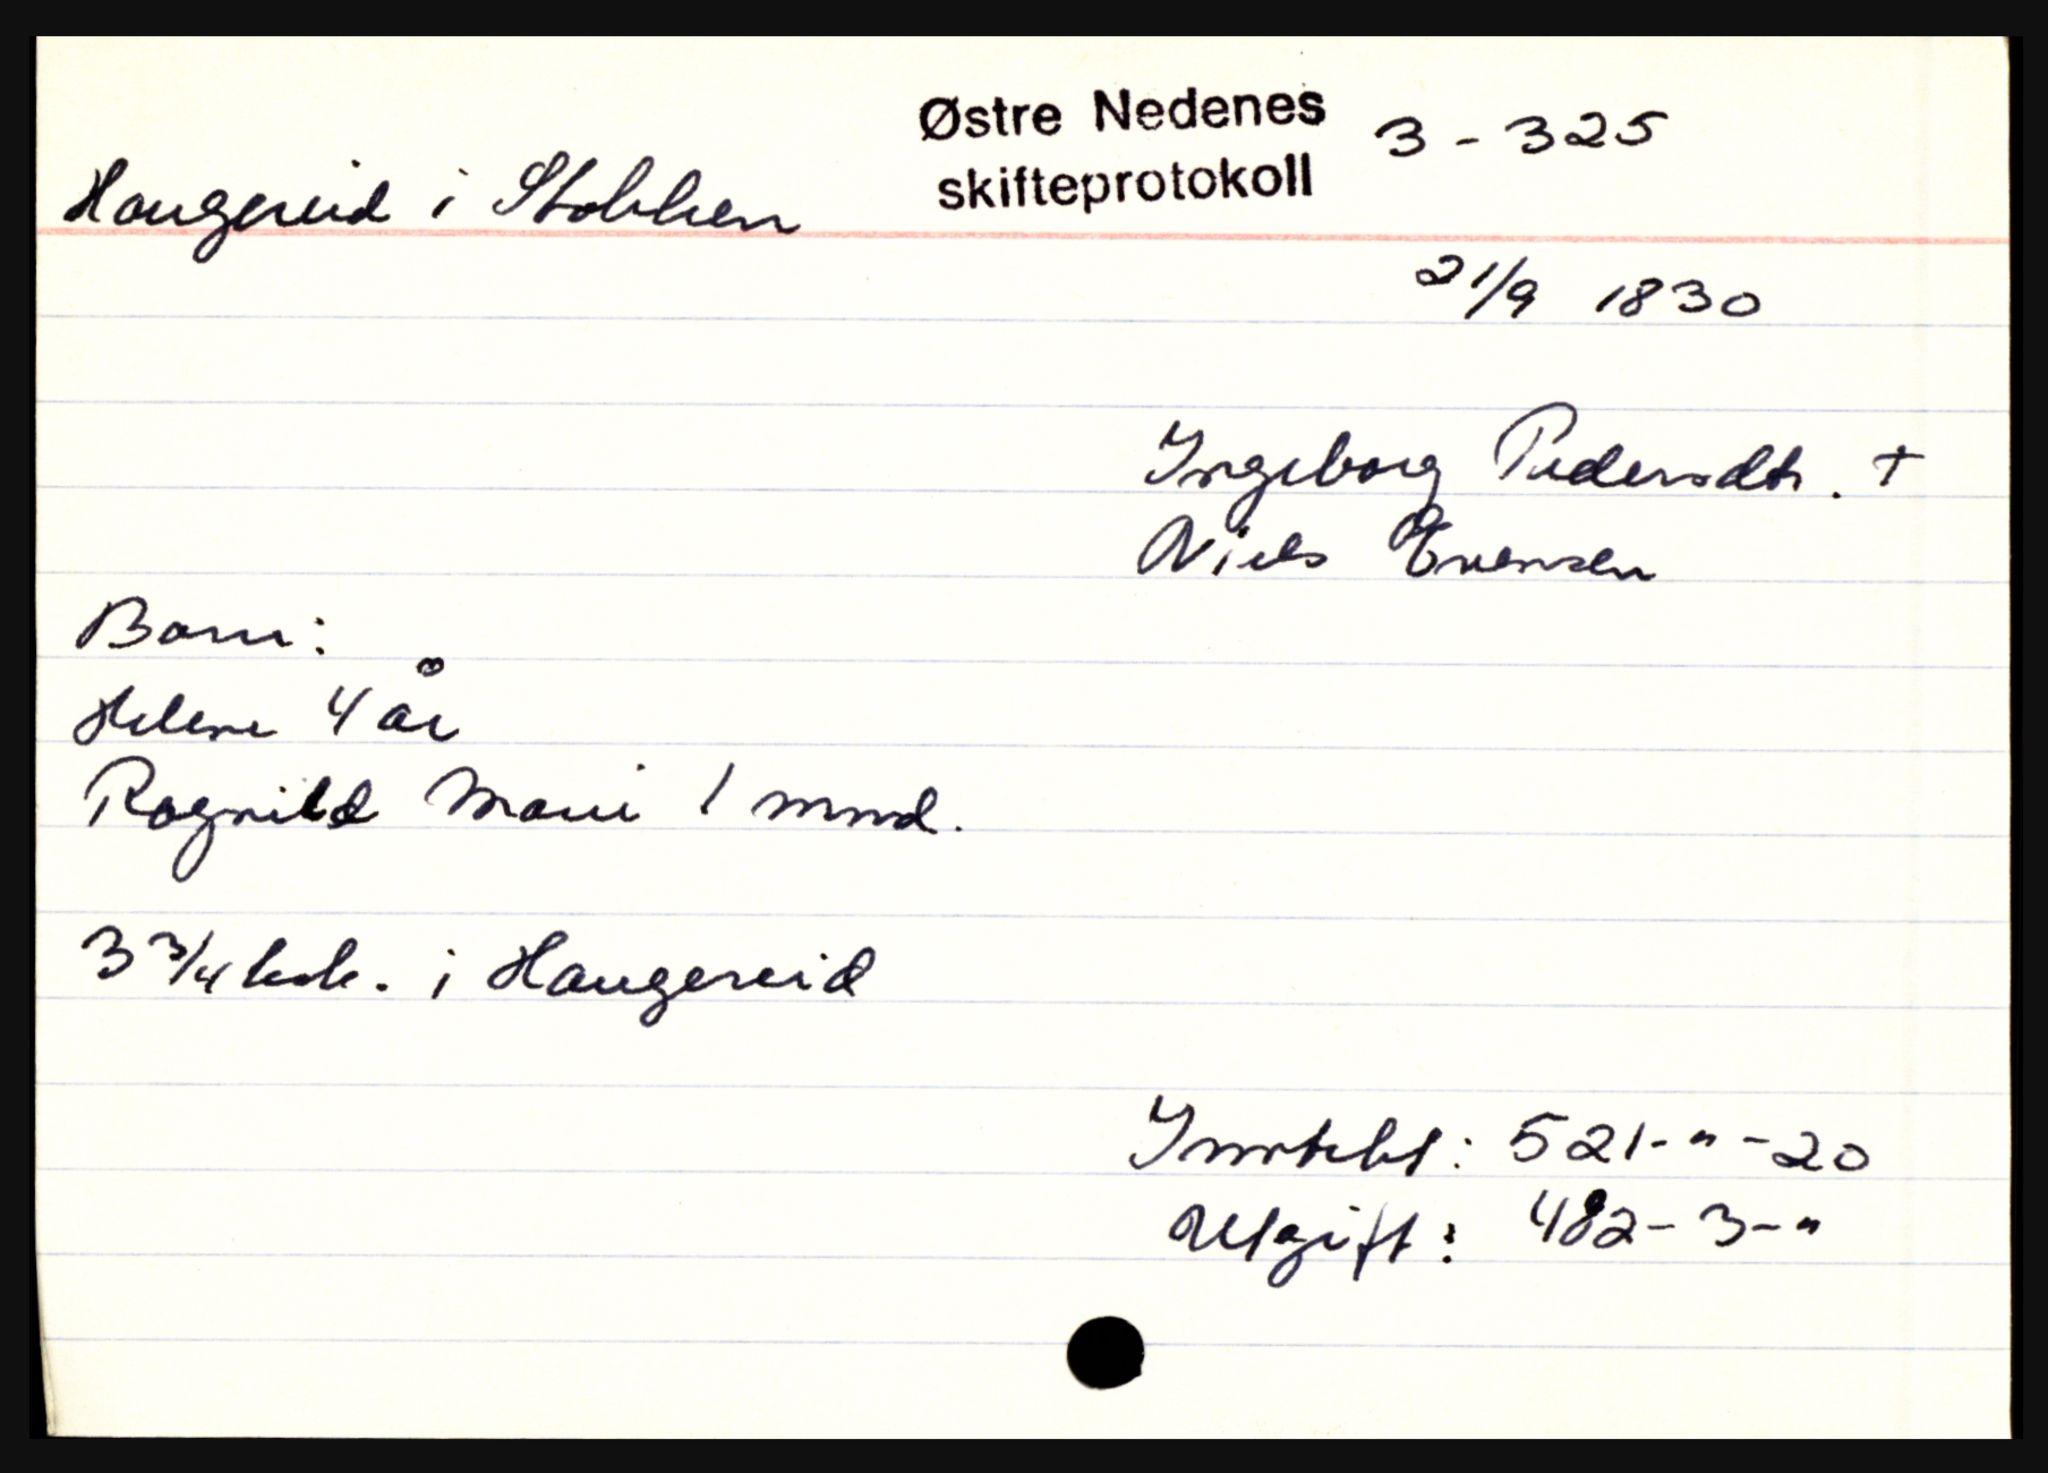 Østre Nedenes 3 - 325
skifteprotokoll
Haugereid i Stokken
21/9 1830
Ingeborg Pedersdtr. +
Niels Evensen
Barn:
Helene 4 år
Ragnild Marie 1 mnd.
3 3/4 ksk. i Haugereid
Inntekt: 521-"-20
Utgift: 482-3-"